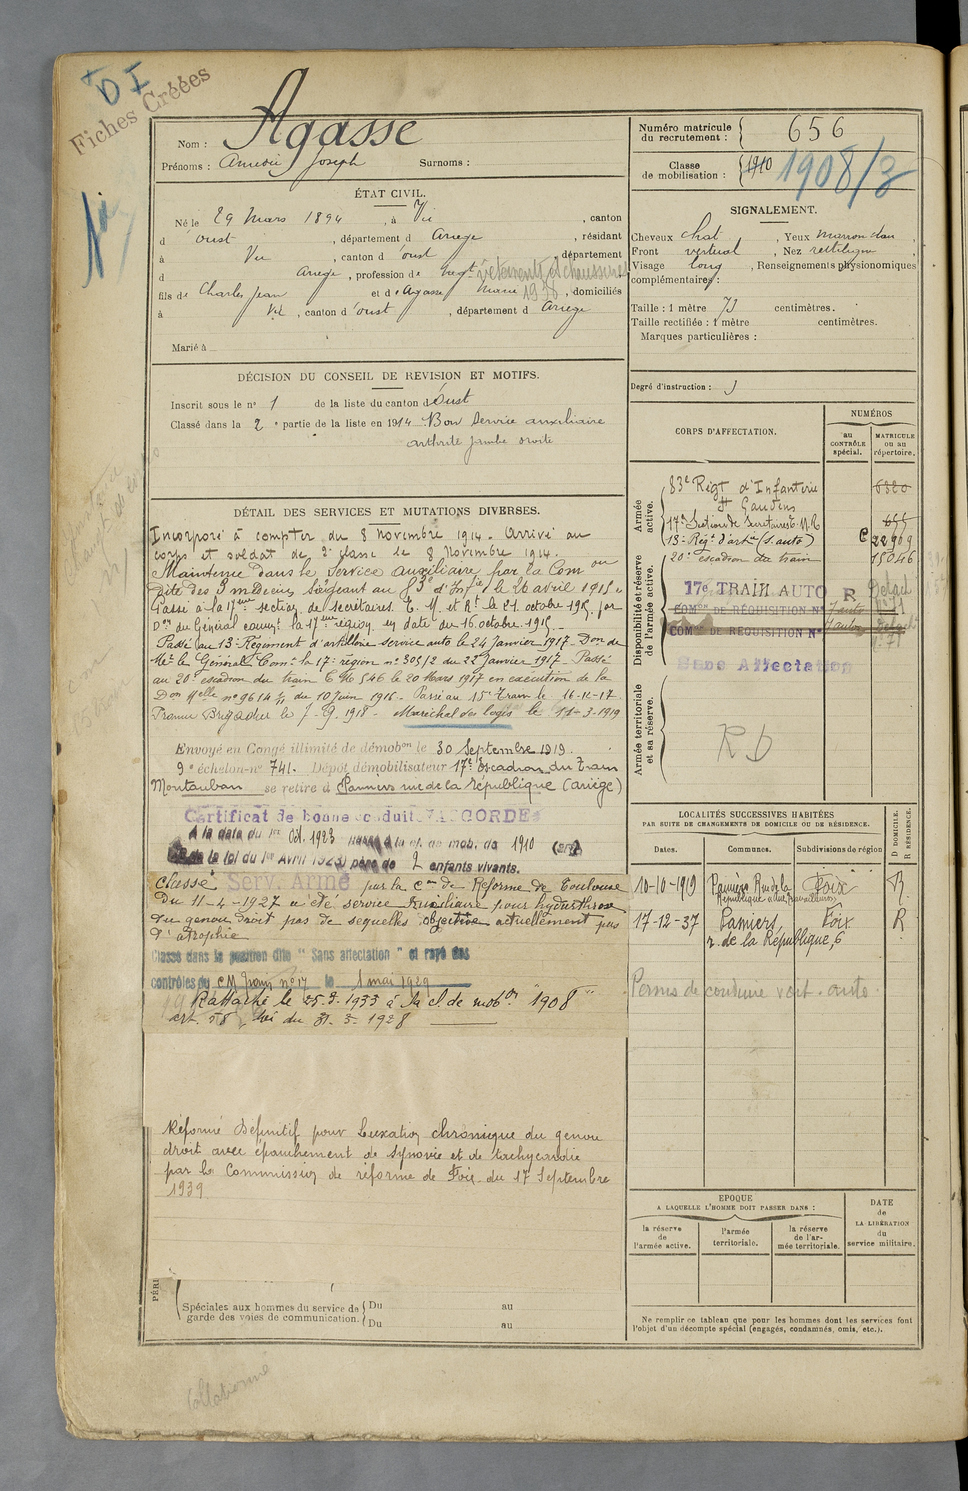 D I
Fiches Créées
Nom : Agasse
Prénoms : Joseph Surnoms :
Numéro matricule du recrutement : 656
Classe de mobilisation : 1910 1908/3
ÉTAT CIVIL.
Né le 29 Mars 1894, à Vic, canton
d'oust, département d Ariege, résidant
à Vic, canton d'oust, département
d Ariege, profession de negt vetements et chaussures
1938
fils de Charles Jean et d'Agasse Marie, domiciliés
à Vic, canton d'oust, département d Ariege
Marié à
SIGNALEMENT.
Cheveux chat, Yeux marron clair,
Front vertical, Nez rectiligne,
Visage long, Renseignements physionomiques
complémentaires :
Taille : 1 mètre 71 centimètres.
Taille rectifiée : 1 mètre centimètres.
Marques particulières :
Degré d'instruction : 3
DÉCISION DU CONSEIL DE REVISION ET MOTIFS.
Inscrit sous le n° 1 de la liste du canton d'Oust
Classé dans la 2e partie de la liste en 1914 Bon Service auxiliaire
arthrite jambe droite
DÉTAIL DES SERVICES ET MUTATIONS DIVERSES.
Incorporé à compter du 8 Novembre 1914. Arrivé au
corps et soldat de 2e classe le 8 Novembre 1914.
Maintenu dans le Service Auxiliaire par la Com on
dite des 3 médecins siégeant au 83e d'Infie le 26 avril 1915.
Passé à la 17eme section de secrétaires E. M. et Rt le 21 octobre 1915 par
Don du Général commt la 17eme région en date du 16 octobre 1915.
Passé au 13e Régiment d'artillerie service auto le 24 Janvier 1917. Don de
Mr le Général Comt la 17e région n° 30512 du 22 Janvier 1917. Passé
au 20e escadron du train C M 546 le 20 Mars 1917 en exécution de la
Don Melle n° 9614 du 10 Juin 1916. Passé au 15e Train le 16-12-17
Promu Brigadier le 7-9-1918. Maréchal des logis le 11-3-1919
Envoyé en Congé illimité de démobon le 30 Septembre 1919.
9e échelon n° 741. Dépôt démobilisateur 17e Escadron du Train
Montauban se retire à Pamiers rue de la République (Ariège)
Certificat de bonne conduite ACCORDÉ
A la date du 1er Oct. 1923 passé à la cl. de mob. de 1910
de la loi du 1er Avril 1923) père de 2 enfants vivants.
Classé Serv. Armé par la con de Réforme de Toulouse
du 11-4-1927 a été service Auxiliaire pour hydarthrose
du genou droit pas de sequelles objective actuellement pas
d'atrophie
Classé dans la position dite "Sans affectation" et rayé des
contrôles du CM Train n° 17 le 1 mai 1929
Rattaché le 25-3-1933 à la cl. de mobon "1908"
art. 58 loi du 31-3-1928
Réformé Définitif pour Luxation chronique du genou
droit avec épanchement de synovie et de tachycardie
par la Commission de réforme de Foix du 17 Septembre
1939
PÉRI
Spéciales aux hommes du service de garde des voies de communication. Du au
Du au
CORPS D'AFFECTATION.
NUMÉROS
au CONTRÔLE spécial.
MATRICULE ou au répertoire.
Armée active.
83e Régt d'Infanterie 6320
St Gaudens
17e Section de Secretaires E. M. R. 655
13e Régt d'artie (S. auto) C 22909
Disponibilité et réserve de l'armée active.
20e escadron du train 15046
17e TRAIN AUTO R Détach
COMon DE RÉQUISITION N° 7 auto n° 71
COMon DE RÉQUISITION N° 7 auto Detach
n° 71
Sans Affectation
Armée territoriale et sa réserve.
R D
LOCALITÉS SUCCESSIVES HABITÉES
PAR SUITE DE CHANGEMENTS DE DOMICILE OU DE RÉSIDENCE.
Dates. Communes. Subdivisions de région D DOMICILE. R RÉSIDENCE.
10-10-1919 Pamiers R. de la Foix R
République
17-12-37 Pamiers, Foix R
r. de la République, 6
Permis de conduire voit. auto.
EPOQUE
A LAQUELLE L'HOMME DOIT PASSER DANS :
la réserve de l'armée active.
l'armée territoriale.
la réserve de l'armée territoriale.
DATE de LA LIBÉRATION du service militaire.
Ne remplir ce tableau que pour les hommes dont les services font
l'objet d'un décompte spécial (engagés, condamnés, omis, etc.).
Collationné